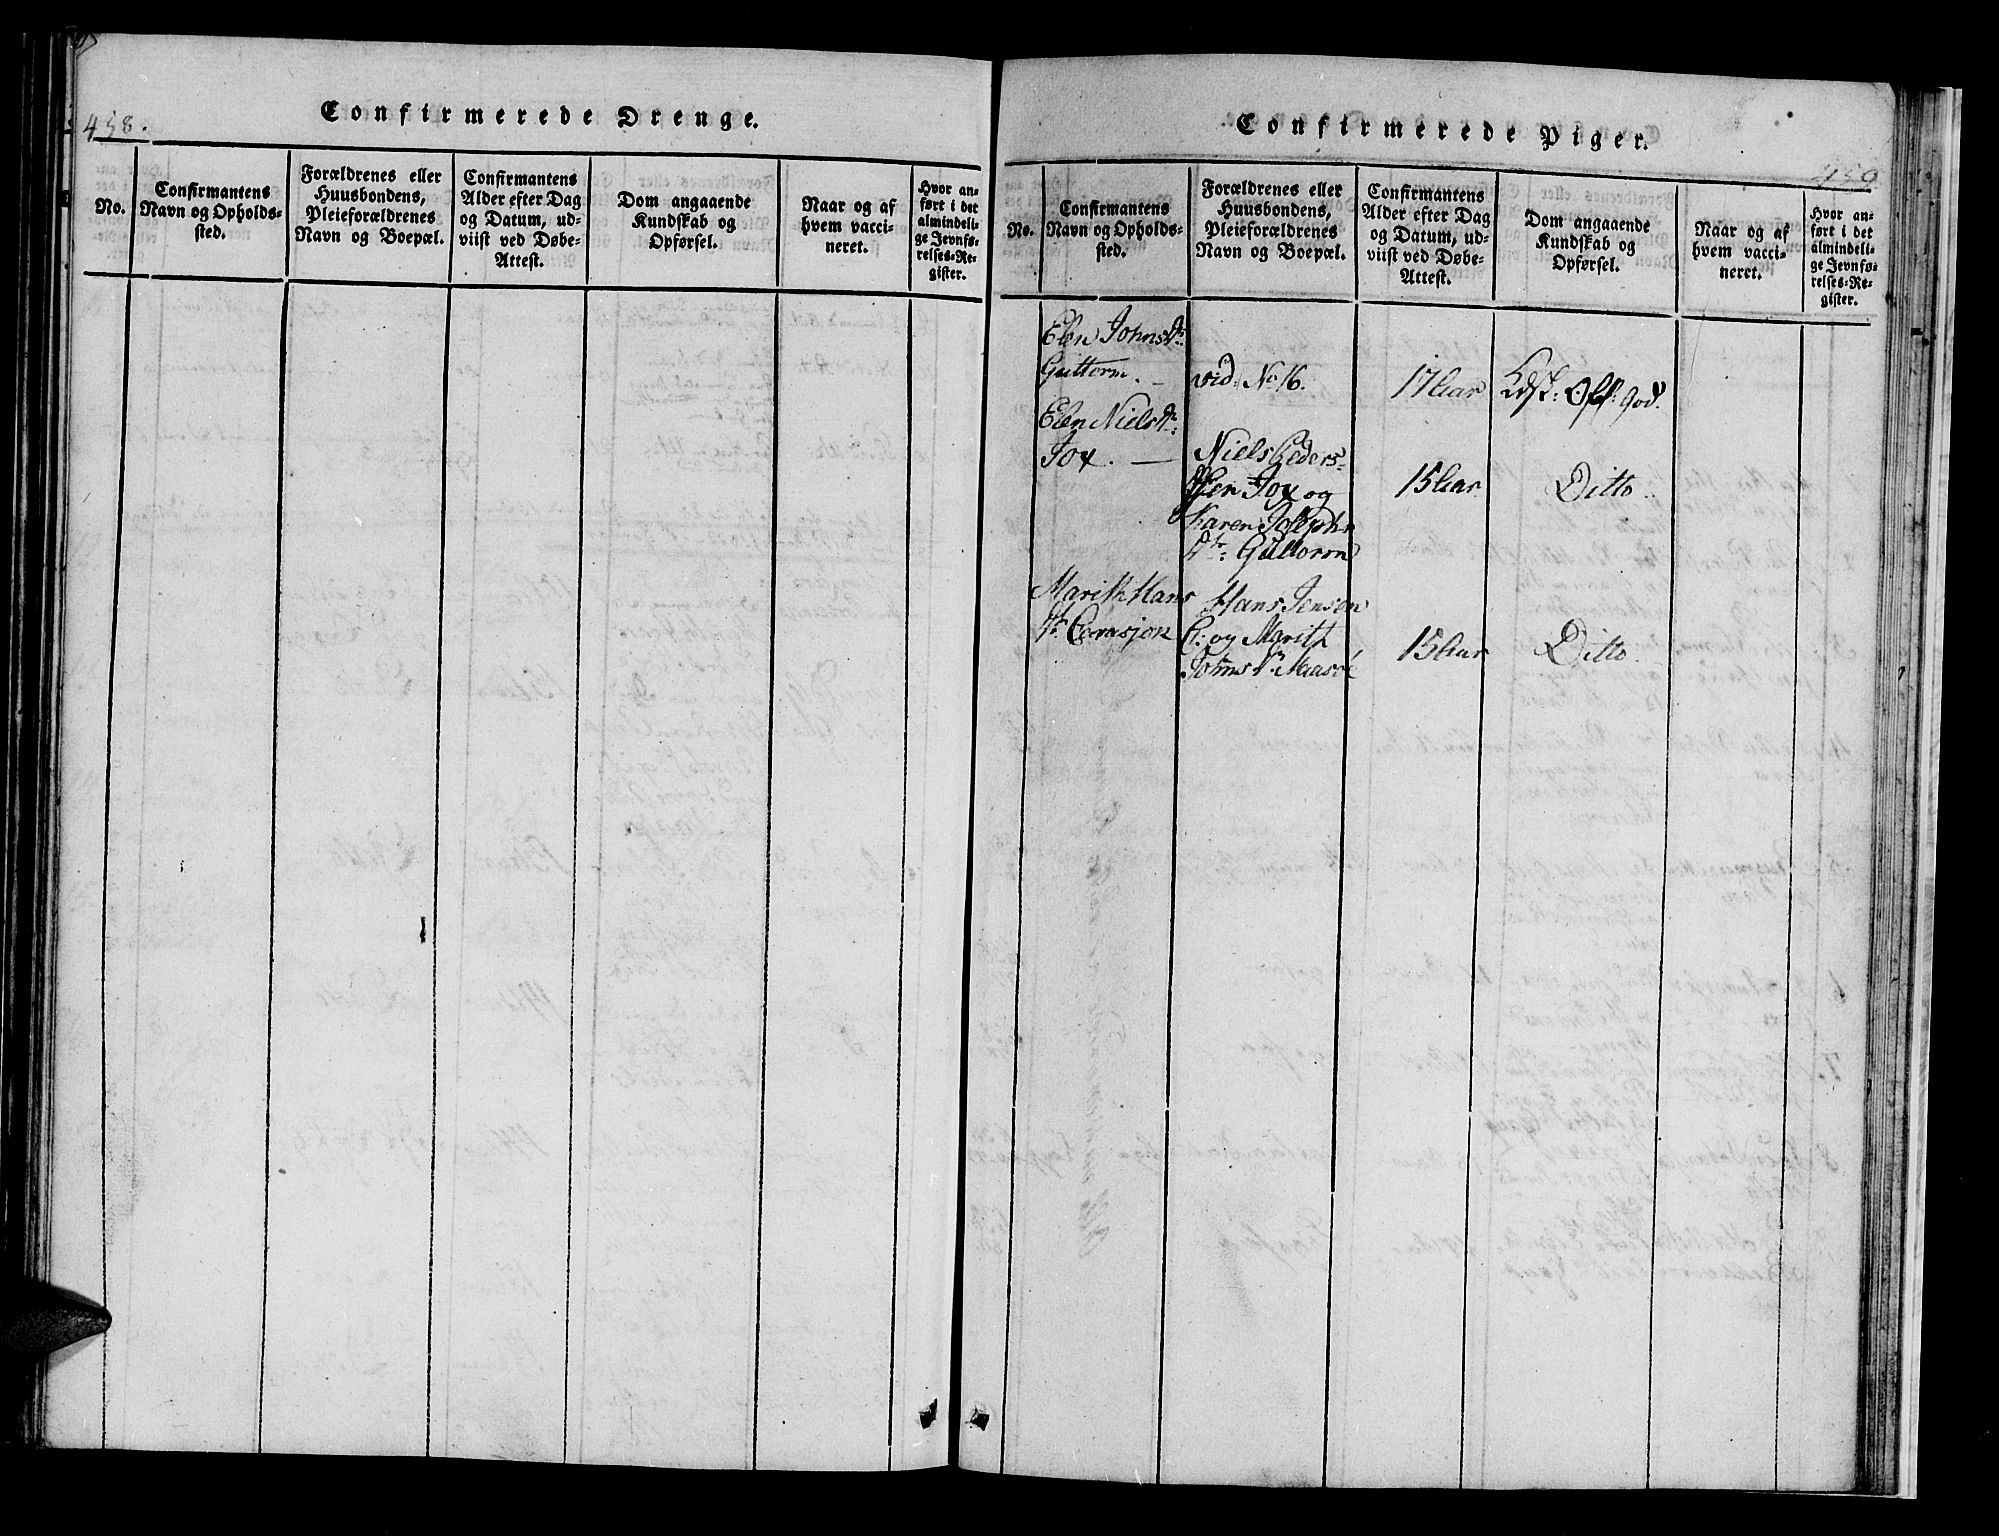 458.
Confirmerede Drenge.
No.
Confirmantens
Navn og Opholds-
sted.
Forældrenes eller
Huusbondens,
Pleieforældrenes
Navn og Boepæl.
Confirmantens
Alder efter Dag
og Datum, ud-
viist ved Døbe-
Attest.
Dom angaaende
Kundskab og
Opførsel.
Naar og af
hvem vacci-
neret.
Hvor an-
ført i det
almindeli-
ge Jevnfø-
relses-Re-
gister.
Confirmerede Piger.
459
No.
Confirmantens
Navn og Opholds-
sted.
Forældrenes eller
Huusbondens,
Pleieforældrenes
Navn og Boepæl.
Confirmantens
Alder efter Dag
og Datum, ud-
viist ved Døbe-
Attest.
Dom angaaende
Kundskab og
Opførsel.
Naar og af
hvem vacci-
neret.
Hvor an-
ført i det
almindeli-
ge Jevnfø-
relses-Re-
gister.
Elen Johnsdr:
Guttorm. — vid. No 16. 17 Aar god.
Elen Nielsdr:
Jox. —
Niels Peders-
sen Jox og
Karen Joseph
dr: Guttorm
15 Aar Ditto
Marith Hans
dr Carasjok
Hans Jensen
C: og Marith
Johns dr Maasøe
15 Aar Ditto